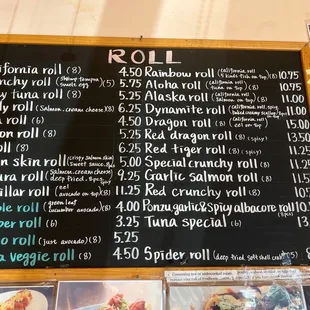 ROLL
ifornia roll (8) 4.50
nchy roll (shrimp tempura, smelt egg) (5) 5.75
y tuna roll (8) 5.75
roll (salmon, cream cheese) (8) 6.25
(6) 4.00
on roll (8)
oll (8) 5.25
on skin roll (crispy salmon skin, sweet sauce, 8pcs) 5.00
roll (salmon, cream cheese, deep fried, 8pcs)
illar roll (eel, avocado on top) (8) 11.25
ble roll (green leaf, cucumber avocado) (8) 4.00
ber roll (6) 3.25
o roll (just avocado) (8) 5.25
a veggie roll (8) 4.50
Rainbow roll (california roll, 4 kinds fish on top) (8) 10.75
Aloha roll (california roll, tuna on top) (8) 10.75
Alaska roll (california roll, salmon on top) (8) 11.00
Dynamite roll (california roll, spicy baked creamy scallop) (8pcs) 11.00
Dragon roll (california roll, eel on top) (8) 15.00
Red dragon roll (8) (spicy) 13.50
Red tiger roll (8) (spicy) 11.25
Special crunchy roll (8)
Garlic salmon roll (8)
Red crunchy roll (8) 10.
Ponzu garlic & spicy albacore roll (8pcs) 10.
Tuna special (6) 13.
Spider roll (deep fried soft shell crab) (5)